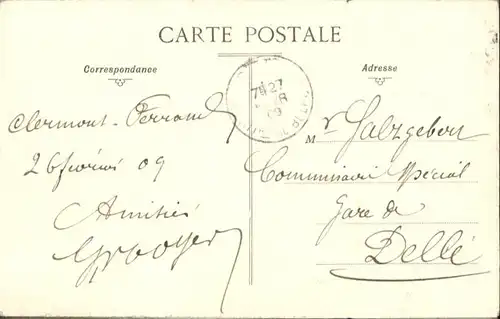 CARTE POSTALE
Correspondance
Adresse
Clermont-Ferrand
26 février 09
Amitiés
27
09
Mr Salzgeber
Commissaire Spécial
Gare de
Delle